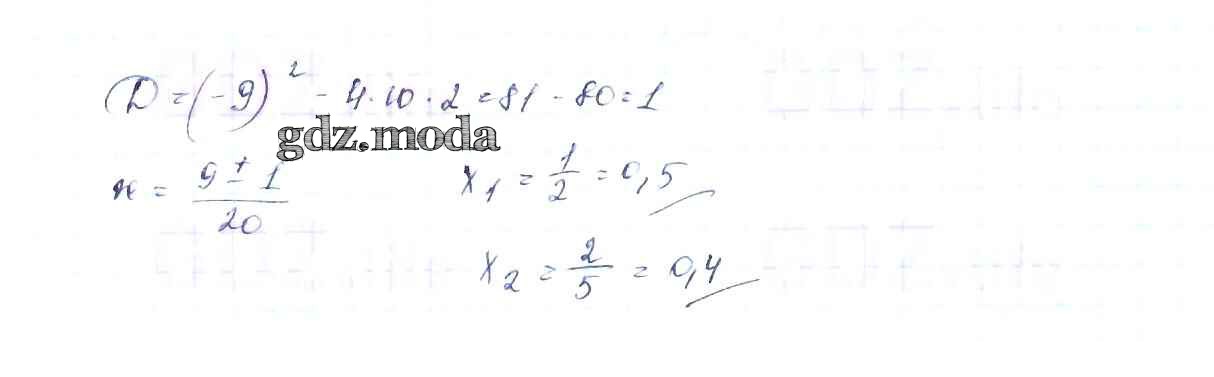 D = (-9)² - 4·10·2 = 81 - 80 = 1
gdz.moda
x = (9 ± 1)/20    x₁ = 1/2 = 0,5
x₂ = 2/5 = 0,4